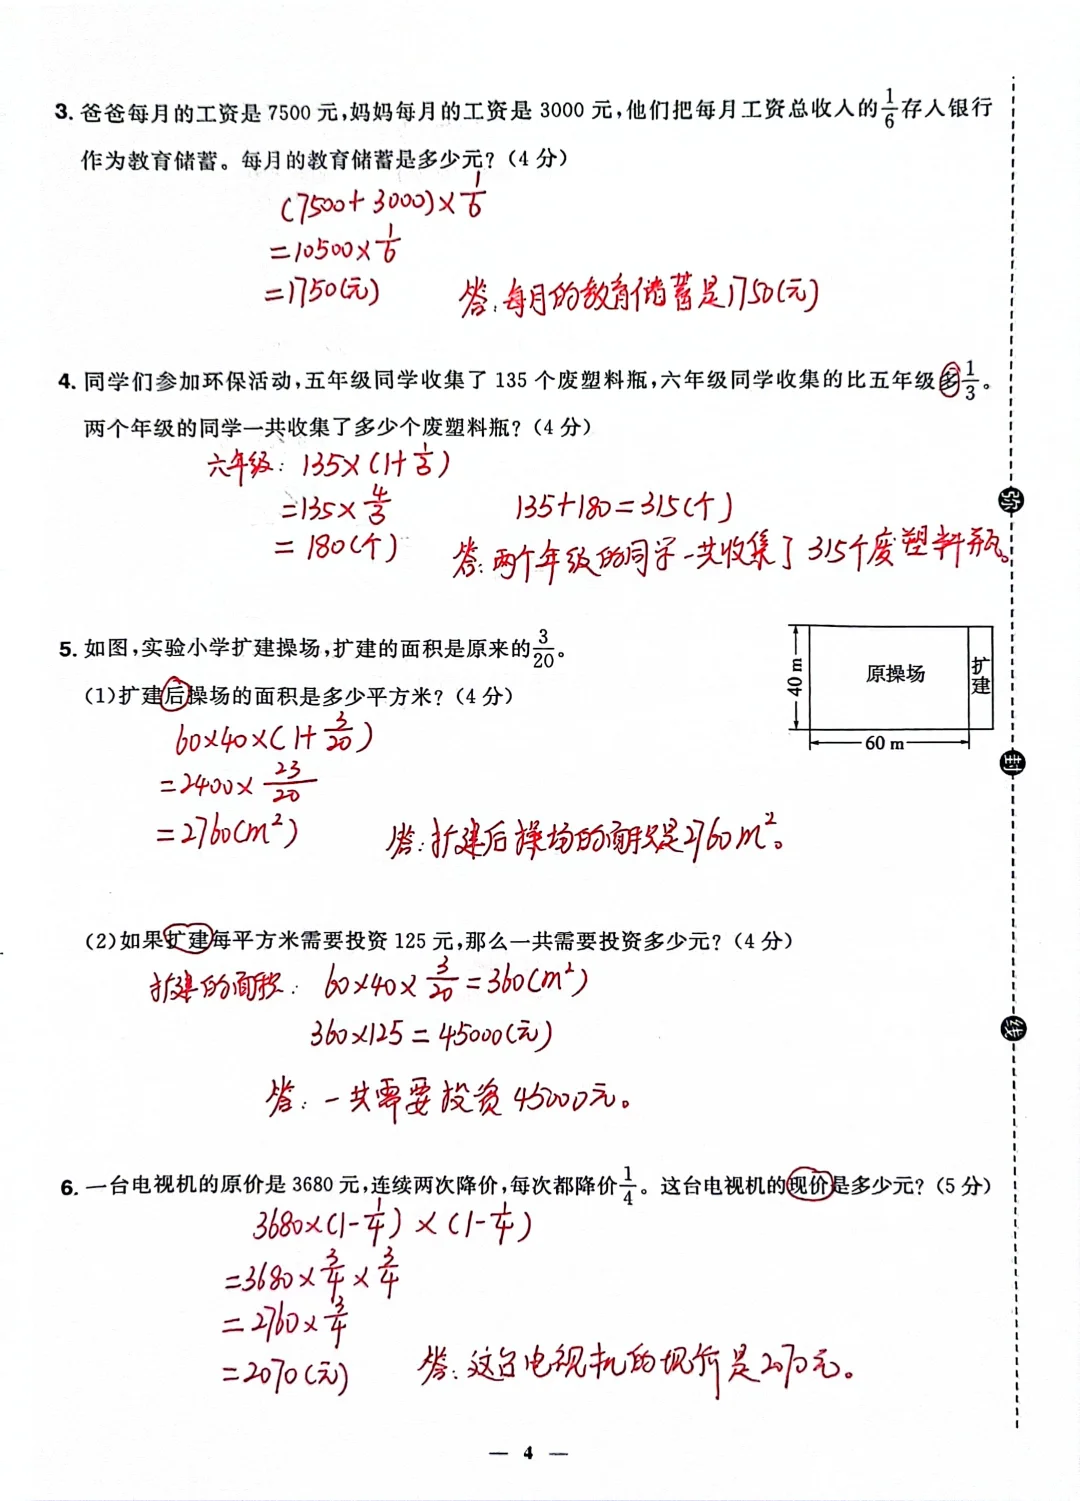 3. 爸爸每月的工资是 7500 元,妈妈每月的工资是 3000 元,他们把每月工资总收入的1/6存入银行
作为教育储蓄。每月的教育储蓄是多少元?(4 分)
(7500+3000)×1/6
=10500×1/6
=1750(元)
答:每月的教育储蓄是1750(元)
4. 同学们参加环保活动,五年级同学收集了 135 个废塑料瓶,六年级同学收集的比五年级多1/3。
两个年级的同学一共收集了多少个废塑料瓶?(4 分)
六年级: 135×(1+1/3)
=135×4/3
135+180=315(个)
=180(个)
答:两个年级的同学一共收集了315个废塑料瓶。
5. 如图,实验小学扩建操场,扩建的面积是原来的3/20。
(1)扩建后操场的面积是多少平方米?(4 分)
40 m
原操场
扩建
60 m
60×40×(1+3/20)
=2400×23/20
=2760(m²)
答:扩建后操场的面积是2760m²。
(2)如果扩建每平方米需要投资 125 元,那么一共需要投资多少元?(4 分)
扩建的面积: 60×40×3/20=360(m²)
360×125=45000(元)
答:一共需要投资45000元。
6. 一台电视机的原价是 3680 元,连续两次降价,每次都降价1/4。这台电视机的现价是多少元?(5 分)
3680×(1-1/4)×(1-1/4)
=3680×3/4×3/4
=2760×3/4
=2070(元)
答:这台电视机的现价是2070元。
密
封
线
— 4 —